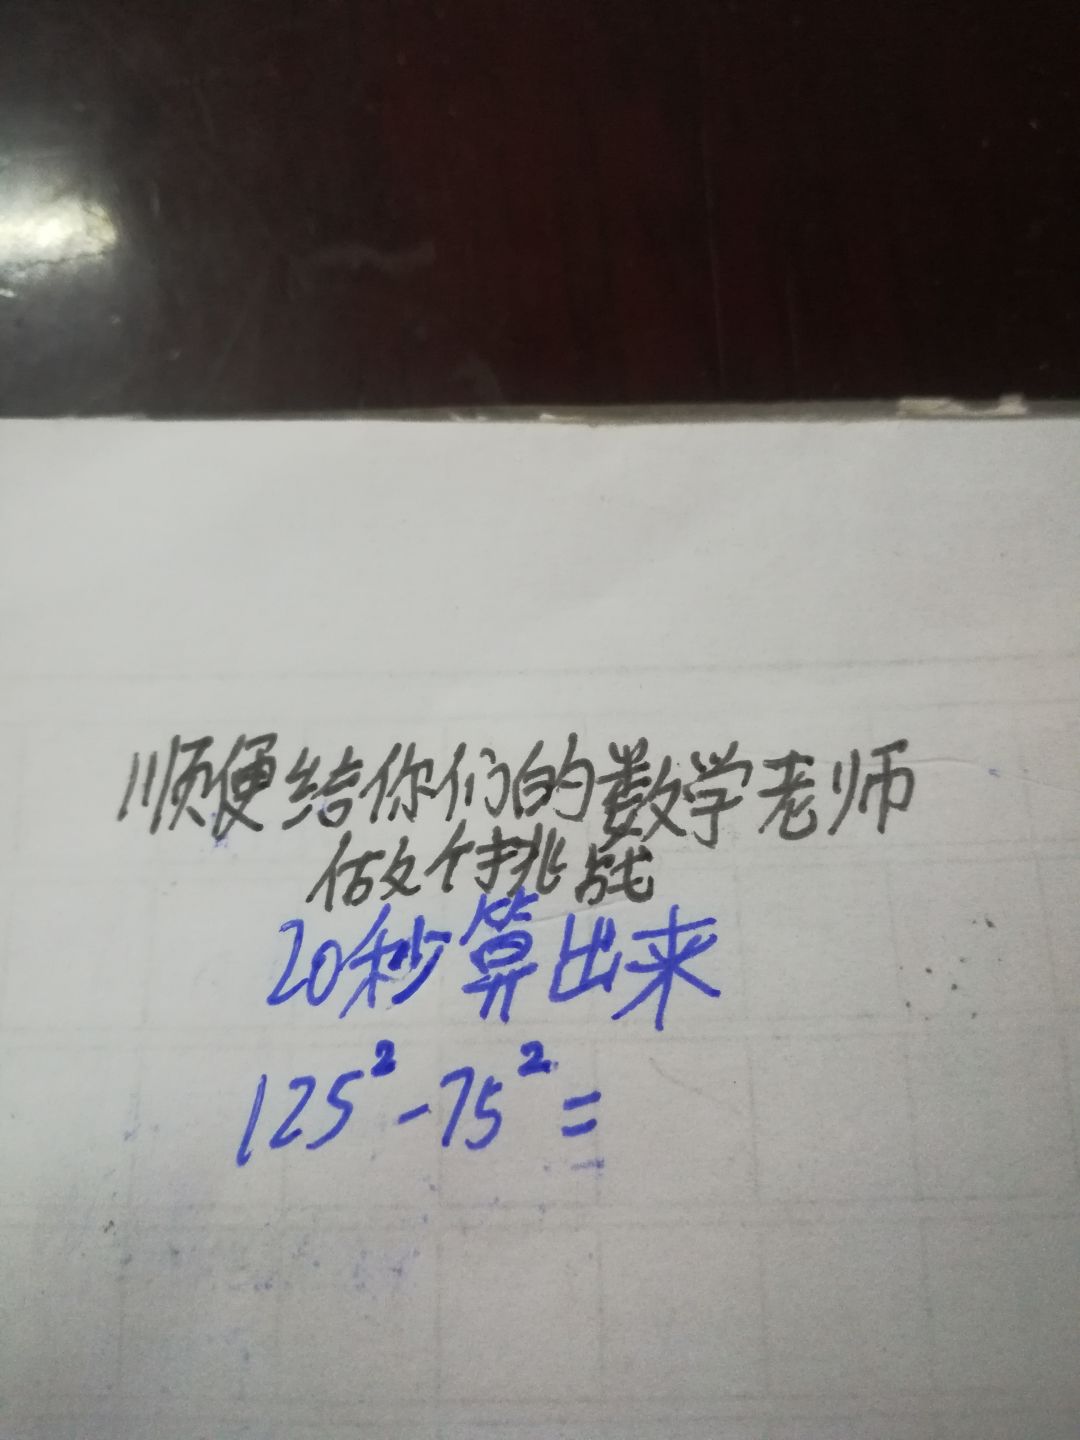 顺便给你们的数学老师
做个挑战
20秒算出来
125²-75²=